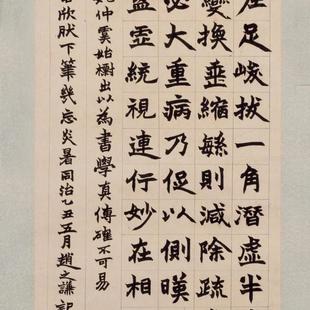 左足峻拔一角潛虛半
變換垂縮緐則減除疏
必大重病乃促以側
盈虛統視連行妙在相
姚仲虞始橅出以為書學真傳確不可易
欣肰下筆幾忘炎暑同治乙丑五月趙之謙記